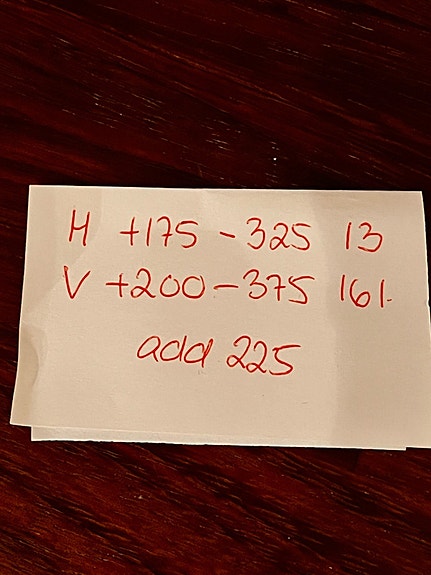 H +175 - 325 13
V +200 - 375 161.
add 225